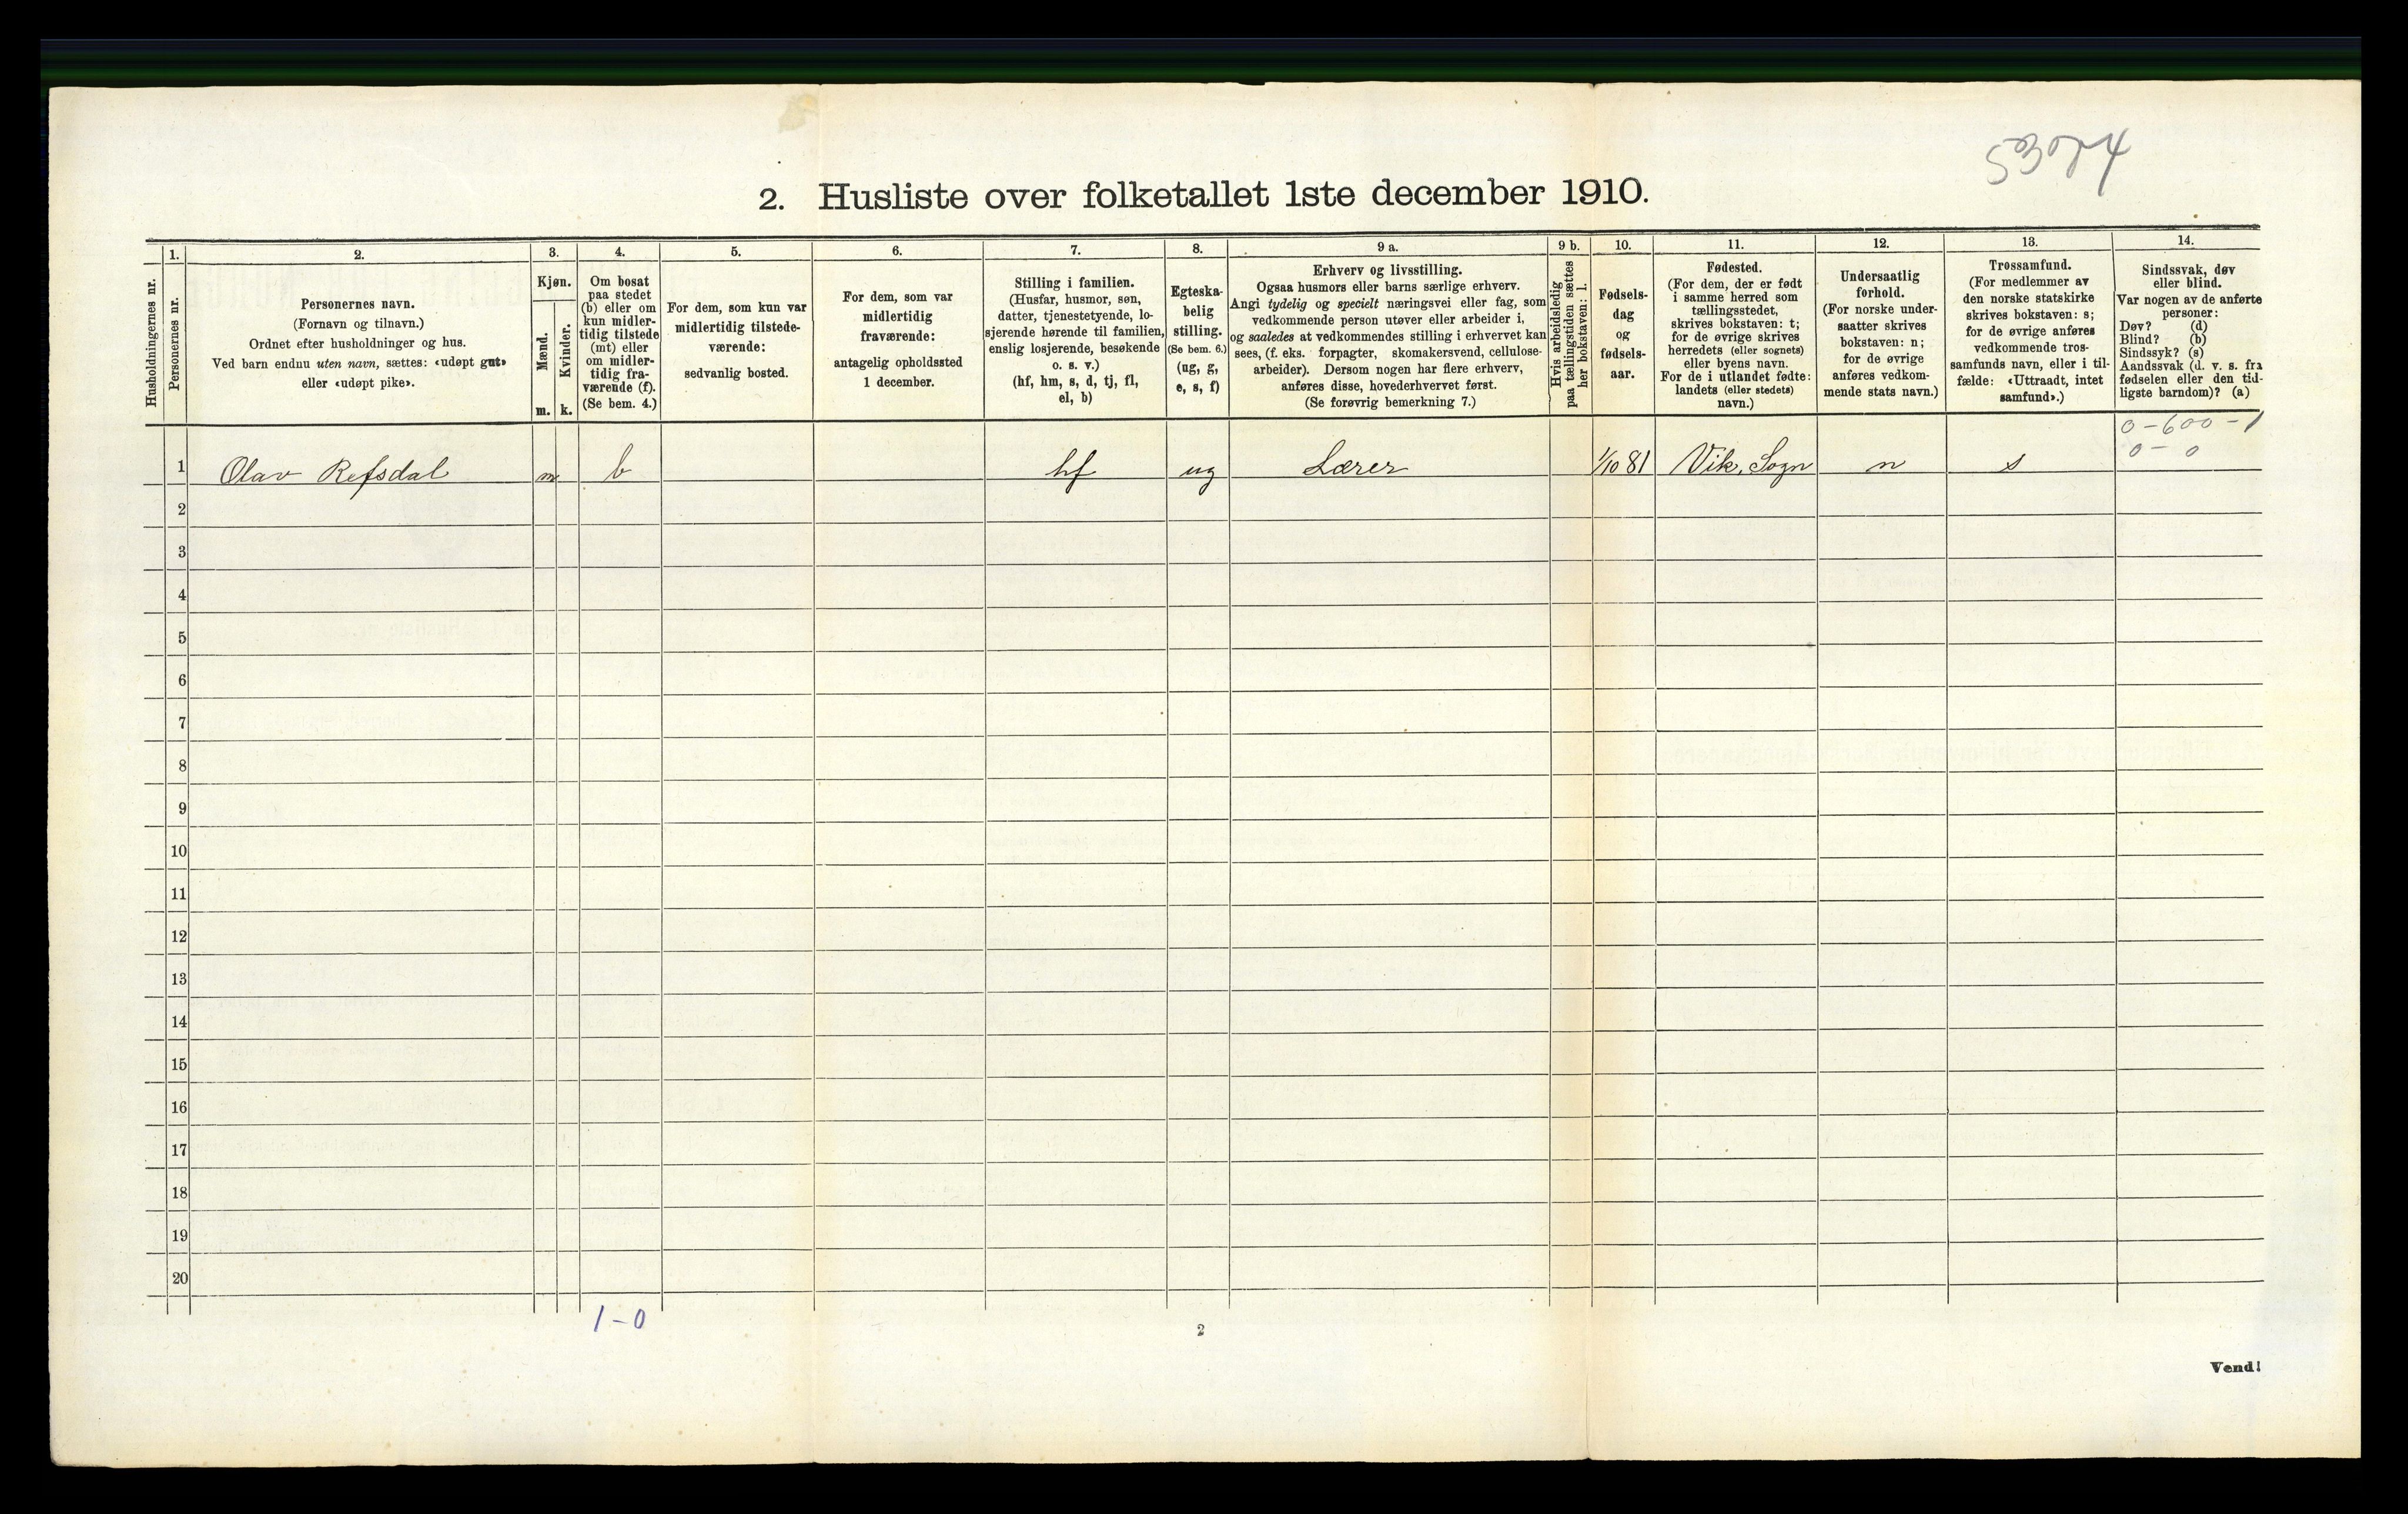 2. Husliste over folketallet 1ste december 1910.
Husholdningernes nr.
1.
Personernes nr.
2.
Personernes navn.
(Fornavn og tilnavn.)
Ordnet efter husholdninger og hus.
Ved barn endnu uten navn, sættes: «udøpt gut»
eller «udøpt pike».
3.
Kjøn.
Mænd.
Kvinder.
m. k.
4.
Om bosat
paa stedet
(b) eller om
kun midler-
tidig tilstede
(mt) eller
om midler-
tidig fra-
værende (f).
(Se bem. 4.)
5.
For dem, som kun var
midlertidig tilstede-
værende:
sedvanlig bosted.
6.
For dem, som var
midlertidig
fraværende:
antagelig opholdssted
1 december.
7.
Stilling i familien.
(Husfar, husmor, søn,
datter, tjenestetyende, lo-
sjerende hørende til familien,
enslig losjerende, besøkende
o. s. v.)
(hf, hm, s, d, tj, fl,
el, b)
8.
Egteska-
belig
stilling.
(Se bem. 6.)
(ug, g,
e, s, f)
9 a.
Erhverv og livsstilling.
Ogsaa husmors eller barns særlige erhverv.
Angi tydelig og specielt næringsvei eller fag, som
vedkommende person utøver eller arbeider i,
og saaledes at vedkommendes stilling i erhvervet kan
sees, (f. eks. forpagter, skomakersvend, cellulose-
arbeider). Dersom nogen har flere erhverv,
anføres disse, hovederhvervet først.
(Se forøvrig bemerkning 7.)
9 b.
Hvis arbeidsledig
paa tællingstiden sættes
her bokstaven: l.
10.
Fødsels-
dag
og
fødsels-
aar.
11.
Fødested.
(For dem, der er født
i samme herred som
tællingsstedet,
skrives bokstaven: t;
for de øvrige skrives
herredets (eller sognets)
eller byens navn.
For de i utlandet fødte:
landets (eller stedets)
navn.)
12.
Undersaatlig
forhold.
(For norske under-
saatter skrives
bokstaven: n;
for de øvrige
anføres vedkom-
mende stats navn.)
13.
Trossamfund.
(For medlemmer av
den norske statskirke
skrives bokstaven: s;
for de øvrige anføres
vedkommende tros-
samfunds navn, eller i til-
fælde: «Uttraadt, intet
samfund».)
14.
Sindssvak, døv
eller blind.
Var nogen av de anførte
personer:
Døv? (d)
Blind? (b)
Sindssyk? (s)
Aandssvak (d. v. s. fra
fødselen eller den tid-
ligste barndom)? (a)
0-600-1
0-0
1 Olav Refsdal m b hf ug Lærer 1/10 81 Vik, Sogn n s
2
3
4
5
6
7
8
9
10
11
12
13
14
15
16
17
18
19
20
1-0
2
Vend!